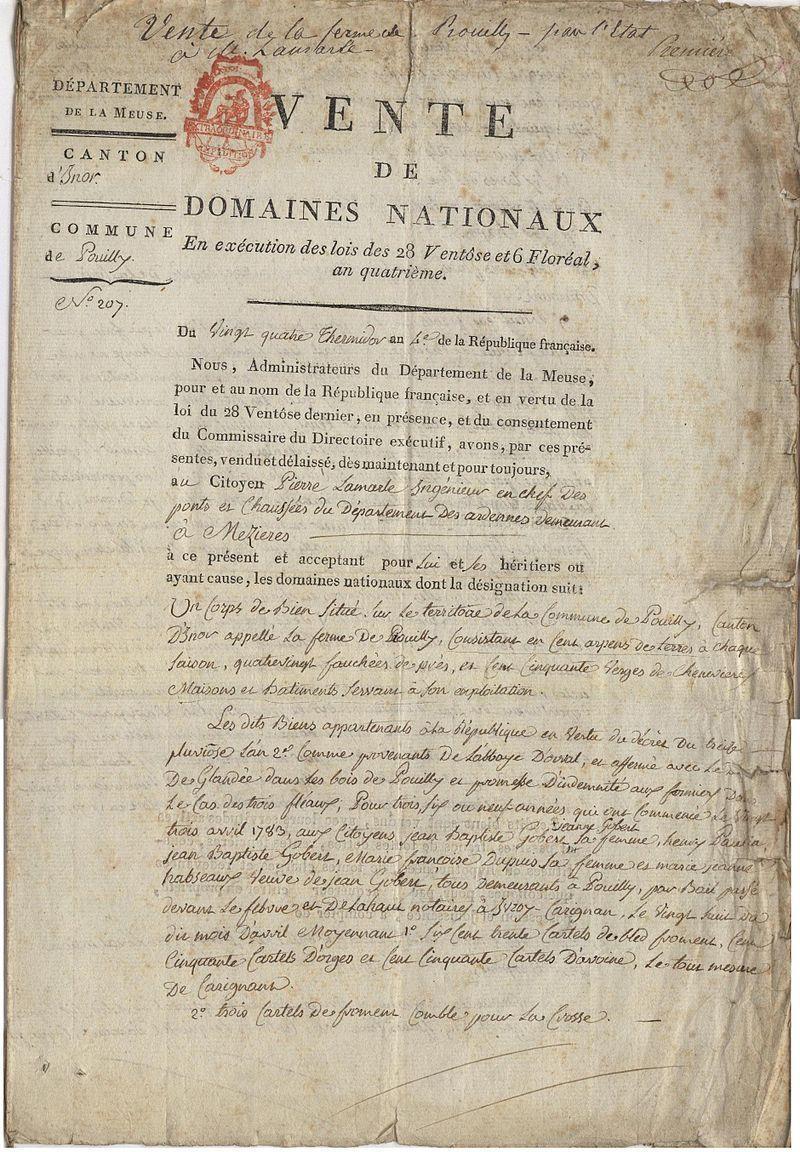 Vente de la ferme de Pouilly – par l'Etat
à M. Lamarle –
Première
DÉPARTEMENT
DE LA MEUSE.
CANTON
d'Inor.
COMMUNE
de Pouilly.
No. 207.
EXTRAORDINAIRE
VENTE
DE
DOMAINES NATIONAUX
En exécution des lois des 28 Ventôse et 6 Floréal,
an quatrième.
Du Vingt quatre Thermidor an 4e de la République française.
Nous, Administrateurs du Département de la Meuse,
pour et au nom de la République française, et en vertu de la
loi du 28 Ventôse dernier, en présence, et du consentement
du Commissaire du Directoire exécutif, avons, par ces pré-
sentes, vendu et délaissé, dès maintenant et pour toujours,
au Citoyen Pierre Lamarle Ingénieur en chef Des
ponts et Chaussées du Département Des ardennes demeurant
à Mezieres
à ce présent et acceptant pour lui et ses héritiers ou
ayant cause, les domaines nationaux dont la désignation suit:
Un Corps de Bien Situé sur le territoire de la Commune de Pouilly, Canton
D'Inor appellé La ferme De Pouilly, Consistant en Cent arpens de terres à chaque
Saison, quatrevingt fauchées de près, et Cent Cinquante Verges de Chenevieres
Maisons et batiments Servant à Son exploitation.
Les dits Biens appartenants à la République en Vertu du décret Du treize
pluviôse L'an 2e Comme provenants De Labbaye D'orval, et affermé avec Le
De Glandée dans Les bois de Pouilly et promesse D'indemnité aux fermiers Dans
Le Cas des trois fléaux, Pour trois, six ou neuf années qui ont Commencé Le Vingt
trois avril 1783, aux Citoyens jean Baptiste Gobert Sa femme, henry
Jeanne Gobert
jean Baptiste Gobert, Marie francoise Dupuis Sa femme et marie jeanne
habseaux Veuve de jean Gobert, tous Demeurants à Pouilly, par Bail passé
devant Le febvre et Delahaut notaires à Ivzoy Carignan, Le Vingt huit du
dit mois D'avril Moyennant 1o Six Cent trente Cartels de bled froment, Cent
Cinquante Cartels D'orges et Cent Cinquante Cartels D'avoine, Le tout mesure
De Carignant.
2o trois Cartels De froment Comble pour La Crosse.